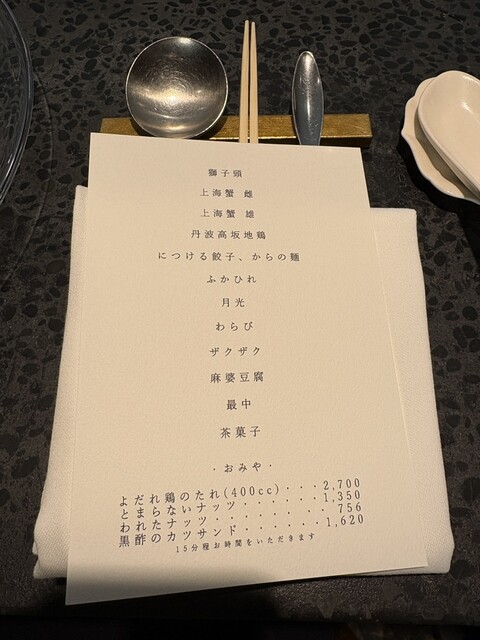 獅子頭
上海蟹 雌
上海蟹 雄
丹波高坂地鶏
につける餃子、からの麺
ふかひれ
月光
わらび
ザクザク
麻婆豆腐
最中
茶菓子
・おみや・
よだれ鶏のたれ(400cc)・・・2,700
とまらないナッツ・・・・・・・1,350
われたナッツ・・・・・・・・・756
黒酢のカツサンド・・・・・・・1,620
15分程お時間をいただきます